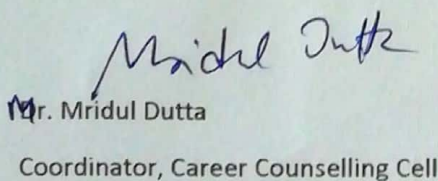 Mridul Dutta
Mr. Mridul Dutta
Coordinator, Career Counselling Cell